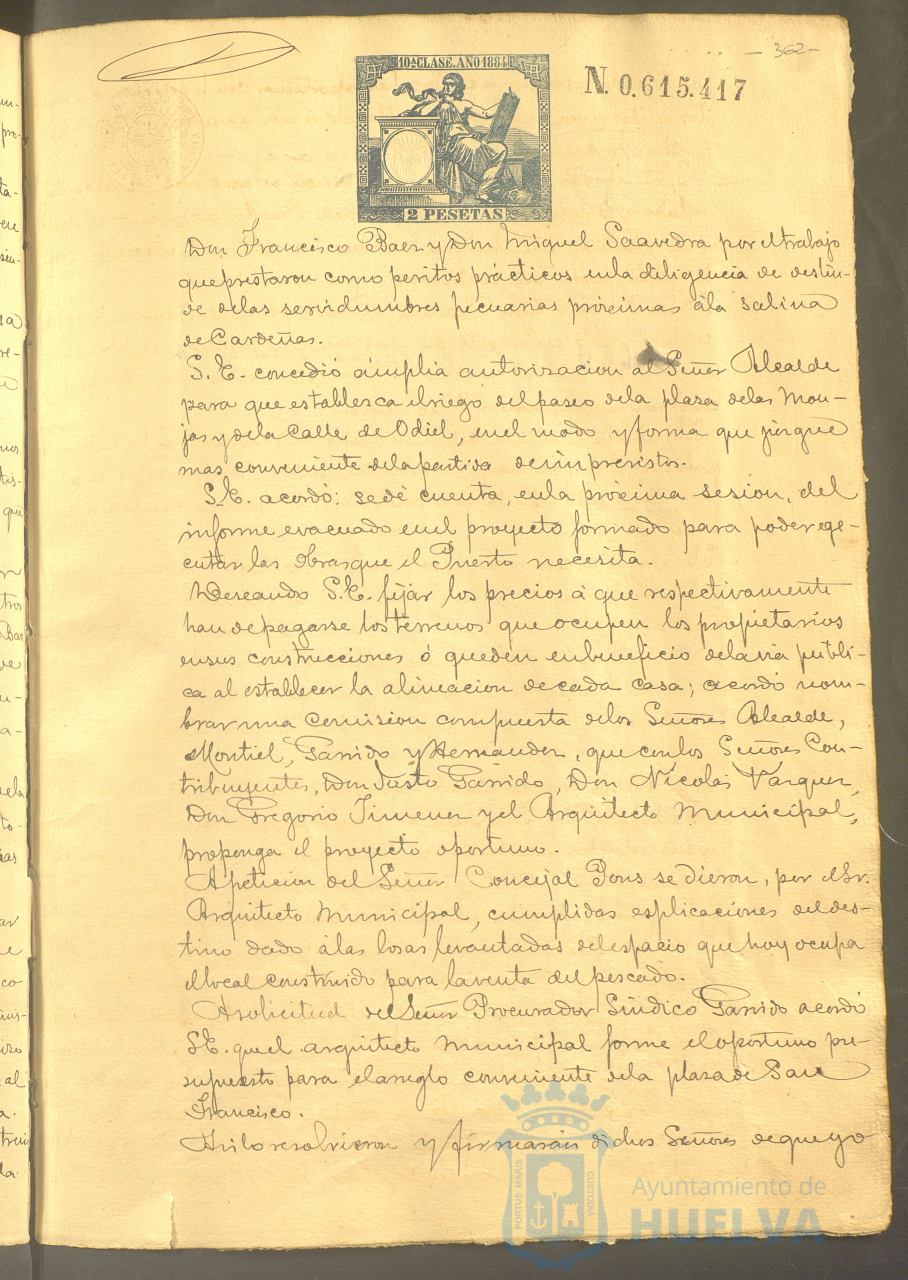 -362-
10ª CLASE. AÑO 1884
2 PESETAS
N. 0.615.417
Don Francisco Baez y Don Miguel Saavedra por el trabajo
que prestaron como peritos prácticos en la diligencia de deslin-
de de las servidumbres pecuarias próximas á la Salina
de Cardeñas.
S. E. concedió ámplia autorizacion al Señor Alcalde
para que establesca el riego del paseo de la plaza de las Mon-
jas y de la Calle de Odiel, en el modo y forma que juzgue
mas conveniente de la partida de imprevistos.
S. E. acordó: se dé cuenta, en la próxima sesion, del
informe evacuado en el proyecto formado para poder ege-
cutar las obras que el Puerto necesita.
Deseando S. E. fijar los precios á que respectivamente
han de pagarse los terrenos que ocupen los propietarios
en sus construcciones ó queden en beneficio de la via públi-
ca al establecer la alineacion de cada casa; acordó nom-
brar una Comision compuesta de los Señores Alcalde,
Montiel, Garrido y Hernandez, que con los Señores Con-
tribuyentes, Don Justo Garrido, Don Nicolás Vazquez,
Don Gregorio Jimenez y el Arquitecto Municipal,
proponga el proyecto oportuno.
A peticion del Señor Concejal Pons se dieron, por el Sr.
Arquitecto Municipal, cumplidas esplicaciones del des-
tino dado á las losas levantadas del espacio que hoy ocupa
el local construido para la venta del pescado.
A solicitud del Señor Procurador Síndico Garrido acordó
S. E. que el arquitecto Municipal forme el oportuno pre-
supuesto para el arreglo conveniente de la plaza de San
Francisco.
Asi lo resolvieron y firmarán dichos Señores de que yo
PORTUS MARIS
CUSTODIA
Ayuntamiento de
HUELVA